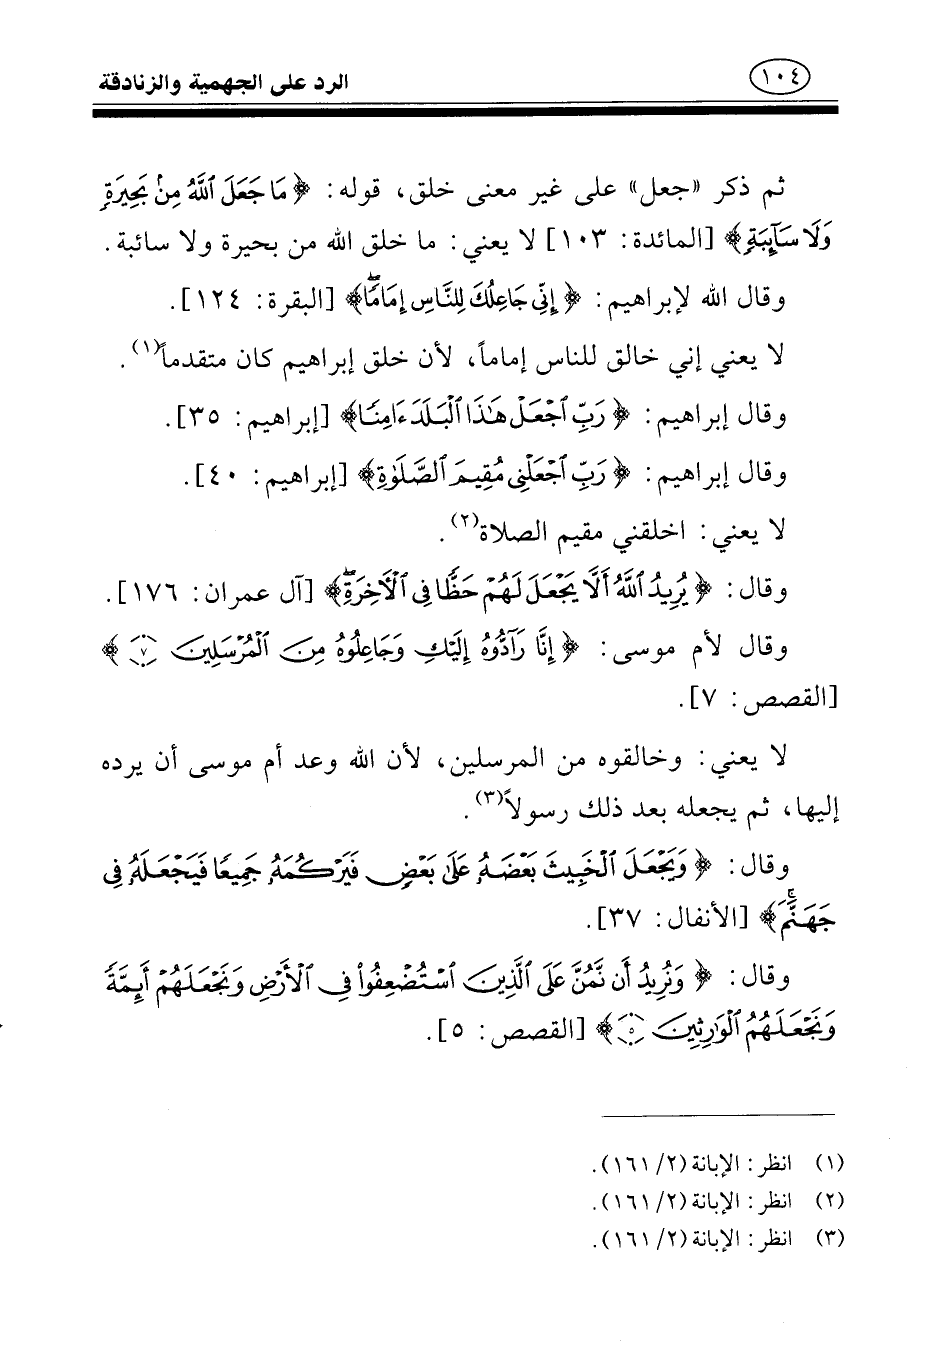 ١٠٤ الرد على الجهمية والزنادقة
ثم ذكر «جعل» على غير معنى خلق، قوله: ﴿مَا جَعَلَ ٱللَّهُ مِنۢ بَحِيرَةٍ
وَلَا سَآئِبَةٍ﴾ [المائدة: ١٠٣] لا يعني: ما خلق الله من بحيرة ولا سائبة.
وقال الله لإبراهيم: ﴿إِنِّى جَاعِلُكَ لِلنَّاسِ إِمَامًاۖ﴾ [البقرة: ١٢٤].
لا يعني إني خالق للناس إماماً، لأن خلق إبراهيم كان متقدماً(١).
وقال إبراهيم: ﴿رَبِّ ٱجْعَلْ هَٰذَا ٱلْبَلَدَ ءَامِنًا﴾ [إبراهيم: ٣٥].
وقال إبراهيم: ﴿رَبِّ ٱجْعَلْنِى مُقِيمَ ٱلصَّلَوٰةِ﴾ [إبراهيم: ٤٠].
لا يعني: اخلقني مقيم الصلاة(٢).
وقال: ﴿يُرِيدُ ٱللَّهُ أَلَّا يَجْعَلَ لَهُمْ حَظًّا فِى ٱلْأَخِرَةِۖ﴾ [آل عمران: ١٧٦].
وقال لأم موسى: ﴿إِنَّا رَآدُّوهُ إِلَيْكِ وَجَاعِلُوهُ مِنَ ٱلْمُرْسَلِينَ ٧﴾
[القصص: ٧].
لا يعني: وخالقوه من المرسلين، لأن الله وعد أم موسى أن يرده
إليها، ثم يجعله بعد ذلك رسولاً(٣).
وقال: ﴿وَيَجْعَلَ ٱلْخَبِيثَ بَعْضَهُۥ عَلَىٰ بَعْضٍ فَيَرْكُمَهُۥ جَمِيعًا فَيَجْعَلَهُۥ فِى
جَهَنَّمَۚ﴾ [الأنفال: ٣٧].
وقال: ﴿وَنُرِيدُ أَن نَّمُنَّ عَلَى ٱلَّذِينَ ٱسْتُضْعِفُوا۟ فِى ٱلْأَرْضِ وَنَجْعَلَهُمْ أَئِمَّةً
وَنَجْعَلَهُمُ ٱلْوَٰرِثِينَ ٥﴾ [القصص: ٥].
(١) انظر: الإبانة (٢/ ١٦١).
(٢) انظر: الإبانة (٢/ ١٦١).
(٣) انظر: الإبانة (٢/ ١٦١).